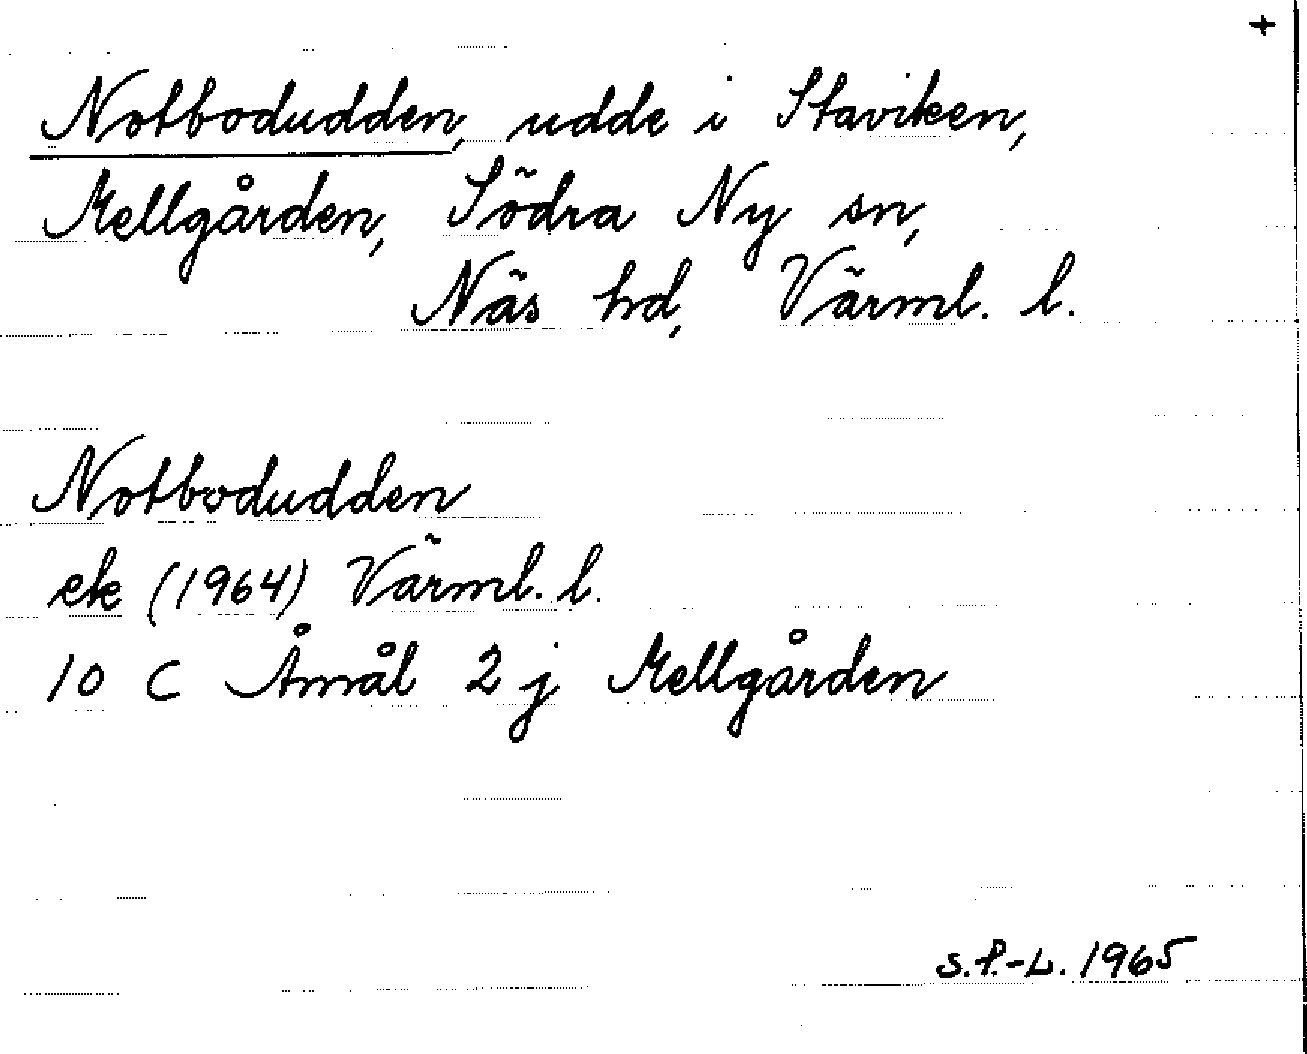 +
Notbodudden, udde i Staviken,
Mellgården, Södra Ny sn,
Näs hd, Värml. l.
Notbodudden
ek (1964) Värml. l.
10 C Åmål 2 j Mellgården
S.P.-L. 1965